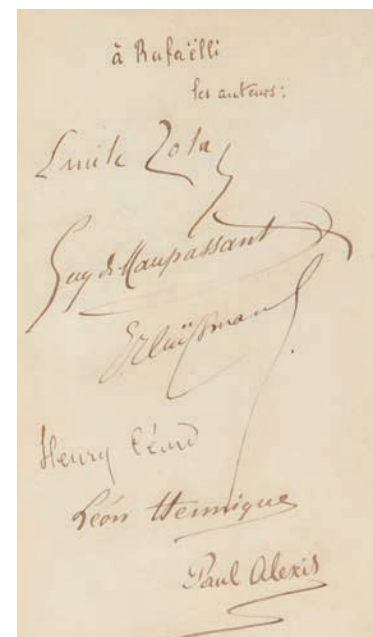 à Rafaëlli
les auteurs:
Emile Zola
Guy de Maupassant
JKHuÿsmans
Henry Céard
Léon Hennique
Paul Alexis